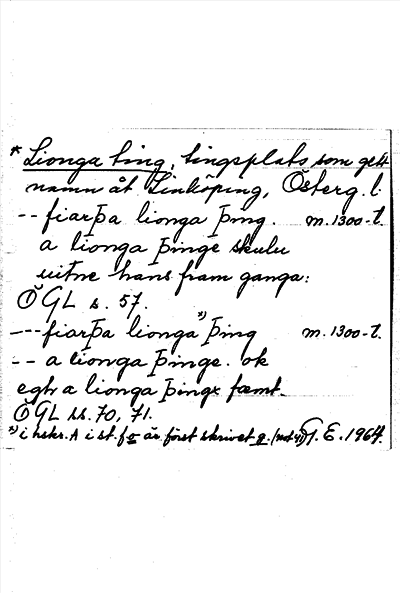 * Lionga ting, tingsplats som gett
namn åt Linköping, Österg. l.
-- fiarþa lionga þing. m. 1300-t.
a lionga þinge skulu
uitne hans fram ganga:
ÖGL s. 57.
--- fiarþa lionga *) þing m. 1300-t.
-- a lionga þinge. ok
egh a lionga þinge fæmt.
ÖGL ss. 70, 71.
*) i hskr. A i st. f. o är först skrivet g. (not 4) G. E. 1964.